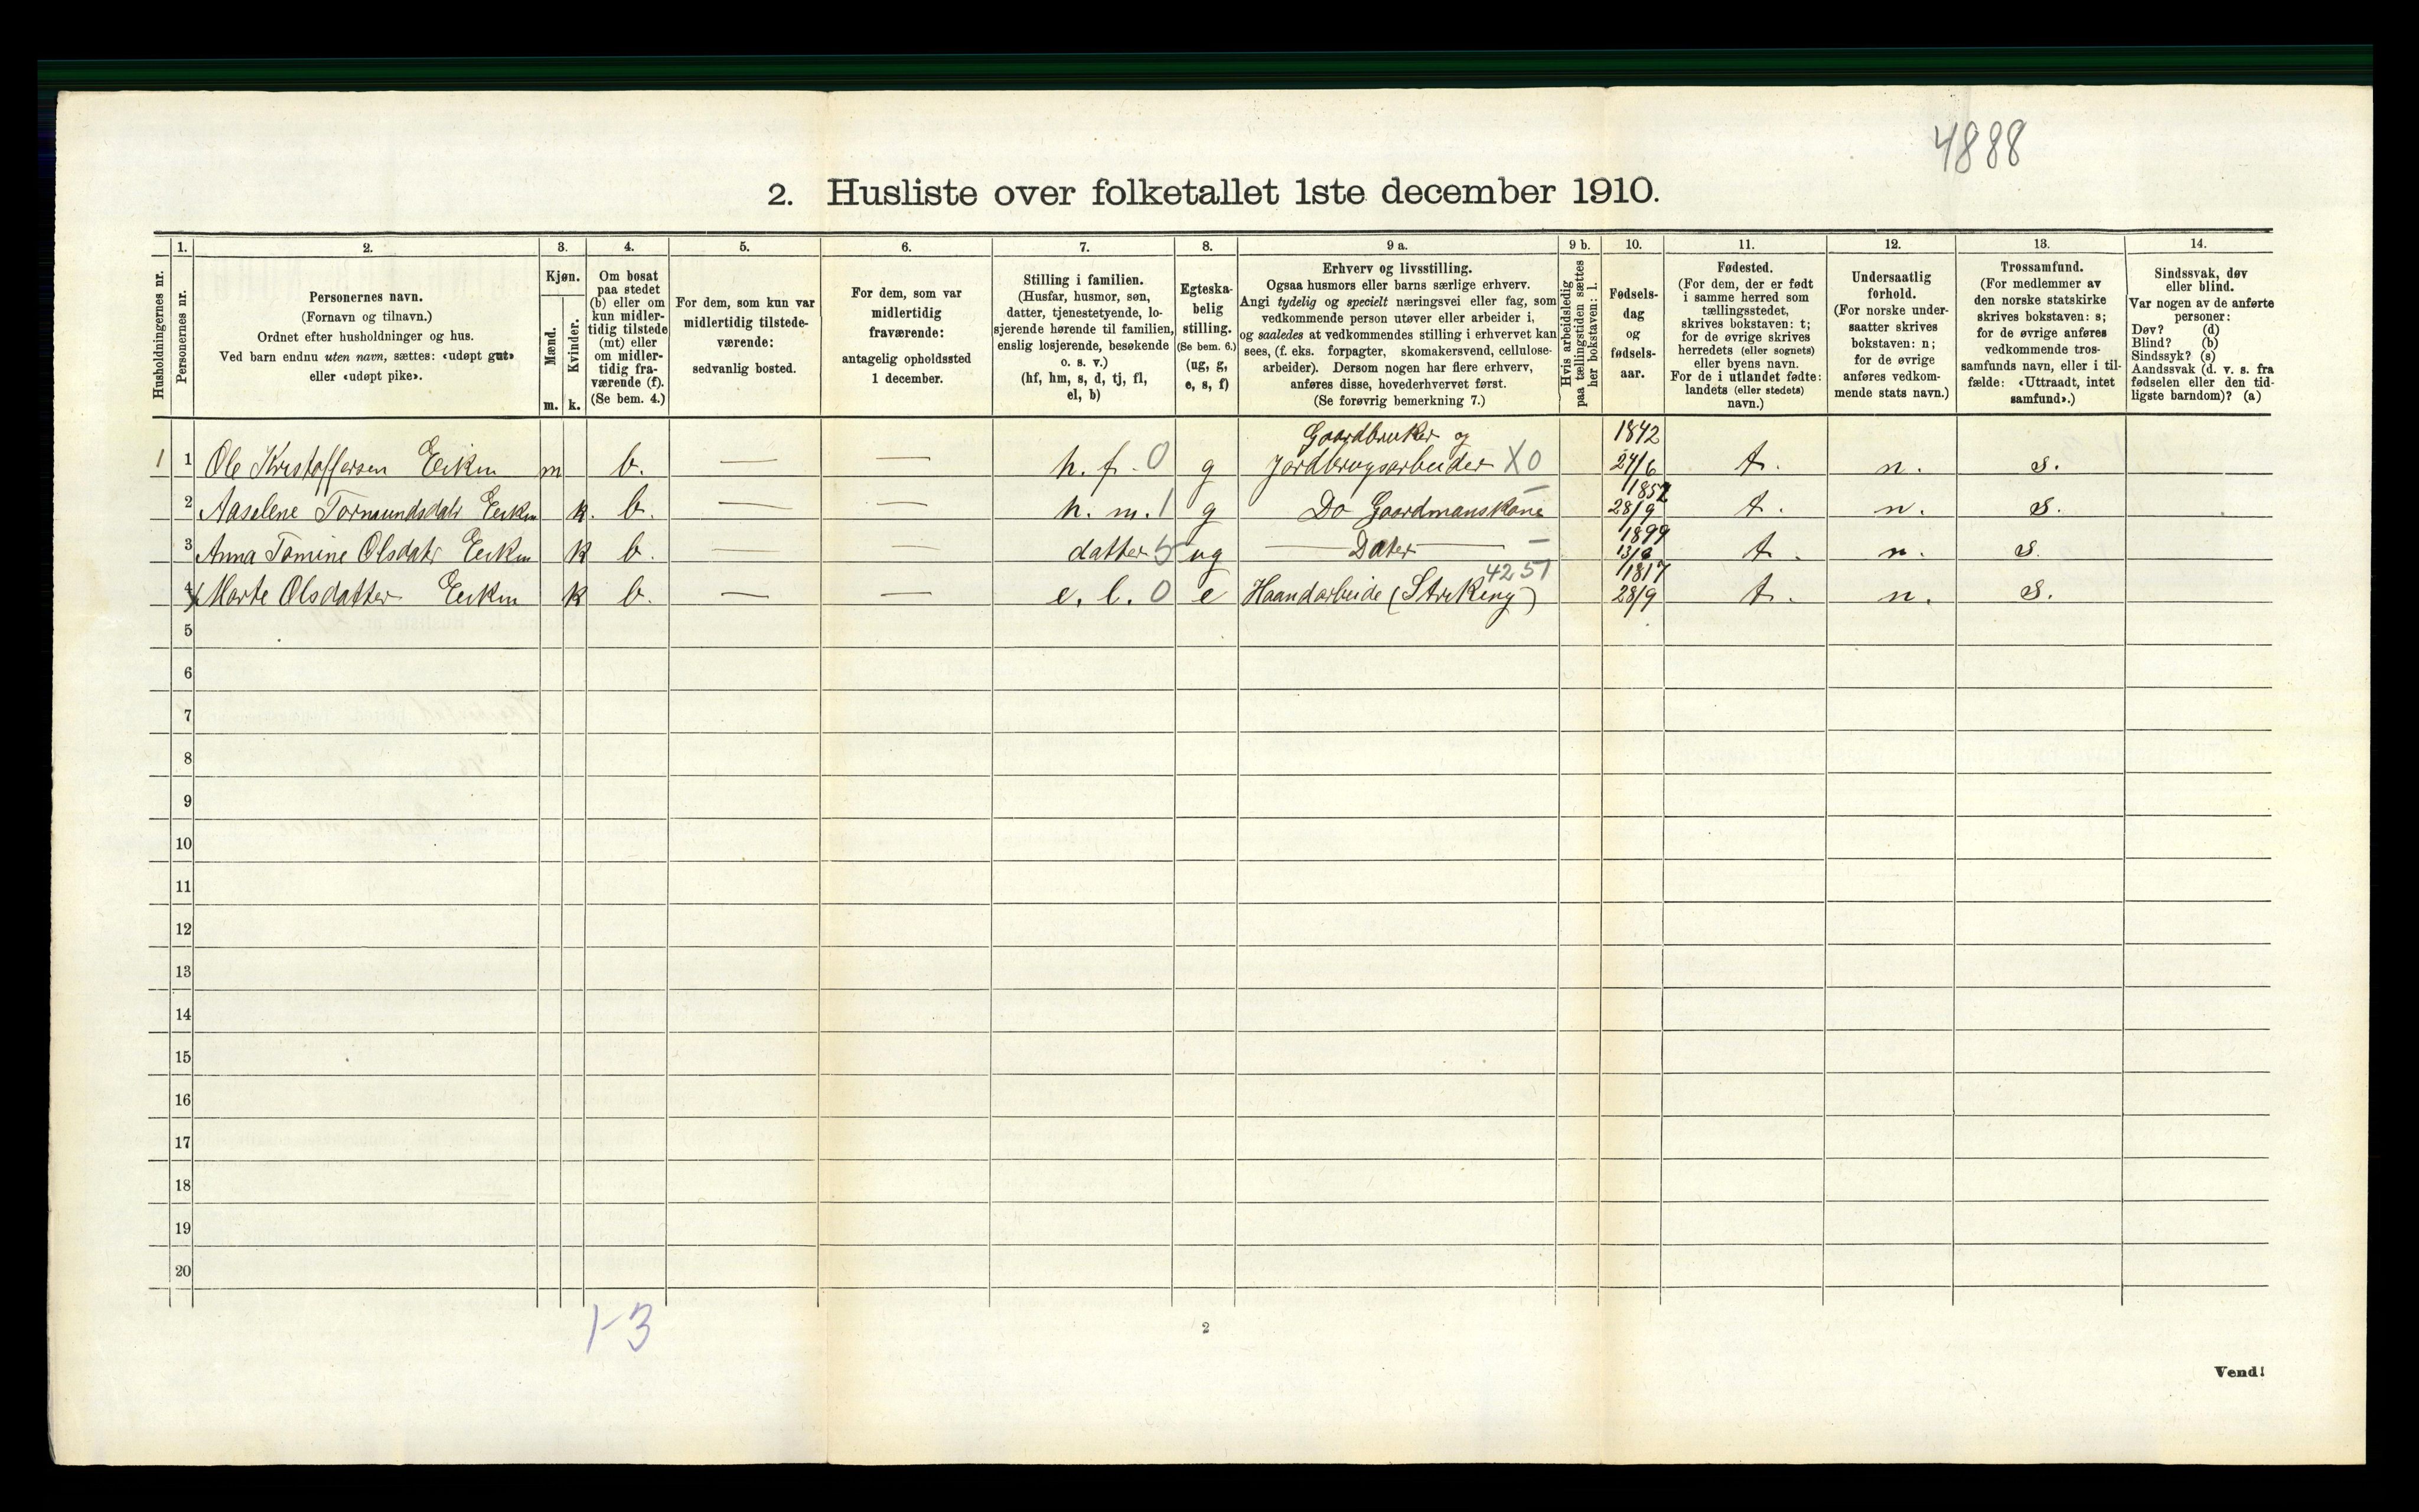 4888
2. Husliste over folketallet 1ste december 1910.
Husholdningernes nr.
1.
Personernes nr.
2.
Personernes navn.
(Fornavn og tilnavn.)
Ordnet efter husholdninger og hus.
Ved barn endnu uten navn, sættes: «udøpt gut»
eller «udøpt pike».
3.
Kjøn.
Mænd.
Kvinder.
m. k.
4.
Om bosat
paa stedet
(b) eller om
kun midler-
tidig tilstede
(mt) eller
om midler-
tidig fra-
værende (f).
(Se bem. 4.)
5.
For dem, som kun var
midlertidig tilstede-
værende:
sedvanlig bosted.
6.
For dem, som var
midlertidig
fraværende:
antagelig opholdssted
1 december.
7.
Stilling i familien.
(Husfar, husmor, søn,
datter, tjenestetyende, lo-
sjerende hørende til familien,
enslig losjerende, besøkende
o. s. v.)
(hf, hm, s, d, tj, fl,
el, b)
8.
Egteska-
belig
stilling.
(Se bem. 6.)
(ug, g,
e, s, f)
9 a.
Erhverv og livsstilling.
Ogsaa husmors eller barns særlige erhverv.
Angi tydelig og specielt næringsvei eller fag, som
vedkommende person utøver eller arbeider i,
og saaledes at vedkommendes stilling i erhvervet kan
sees, (f. eks. forpagter, skomakersvend, cellulose-
arbeider). Dersom nogen har flere erhverv,
anføres disse, hovederhvervet først.
(Se forøvrig bemerkning 7.)
9 b.
Hvis arbeidsledig
paa tællingstiden sættes
her bokstaven: l.
10.
Fødsels-
dag
og
fødsels-
aar.
11.
Fødested.
(For dem, der er født
i samme herred som
tællingsstedet,
skrives bokstaven: t;
for de øvrige skrives
herredets (eller sognets)
eller byens navn.
For de i utlandet fødte:
landets (eller stedets)
navn.)
12.
Undersaatlig
forhold.
(For norske under-
saatter skrives
bokstaven: n;
for de øvrige
anføres vedkom-
mende stats navn.)
13.
Trossamfund.
(For medlemmer av
den norske statskirke
skrives bokstaven: s;
for de øvrige anføres
vedkommende tros-
samfunds navn, eller i til-
fælde: «Uttraadt, intet
samfund».)
14.
Sindssvak, døv
eller blind.
Var nogen av de anførte
personer:
Døv? (d)
Blind? (b)
Sindssyk? (s)
Aandssvak (d. v. s. fra
fødselen eller den tid-
ligste barndom)? (a)
Gaardbruker og 1842
1 1 Ole Kristoffersen Eeiken m b. — — h. f. 0 g Jordbrugsarbeider X0 24/6 t. n. s.
1852
2 Aaselene Tormundsdatr Eeiken k. b. — — h. m. 1 g Do Gaardmanskone — 28/9 t. n. s.
1899
3 Anna Tomine Olsdatr Eeiken k b. — — datter 5 ug Dater — 13/6 t. n. s.
4251 1817
4 Marte Olsdatter Eeiken k b. — — e. l. 0 e Haandarbeide (Striking) 28/9 t. n. s.
5
6
7
8
9
10
11
12
13
14
15
16
17
18
19
20
1-3
2
Vend!